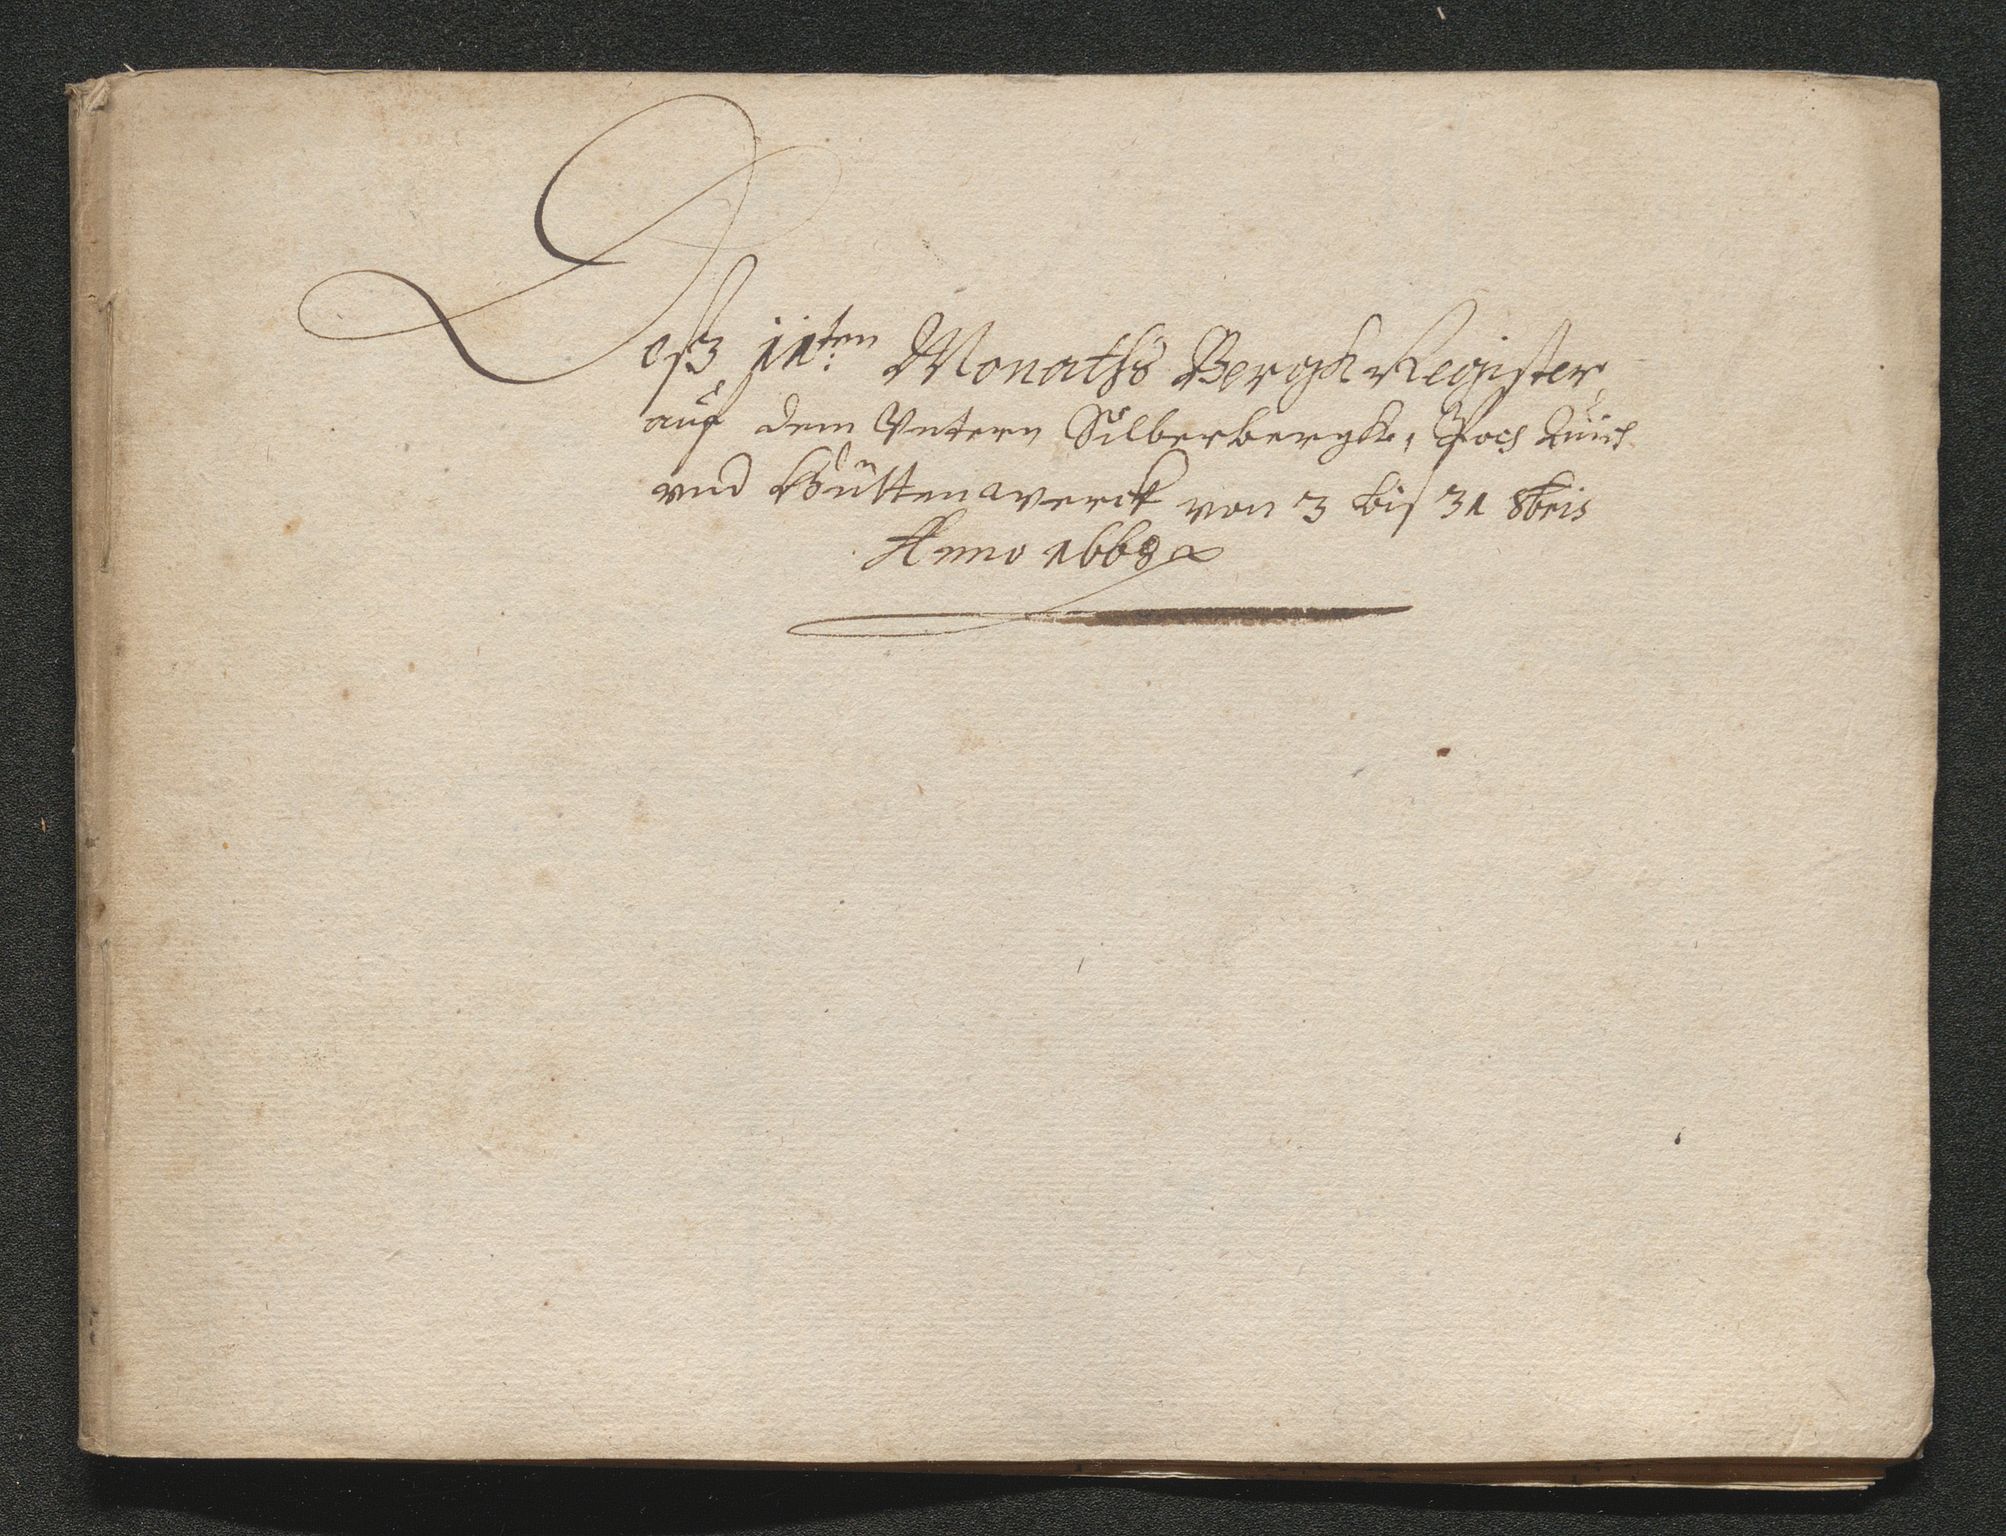 Deß 11ten Monaths Bergk Register,
auf dem Vntern Silberbergk, Poch
vnd Hüttenwerck von 3 biß 31 8bris
Anno 1668